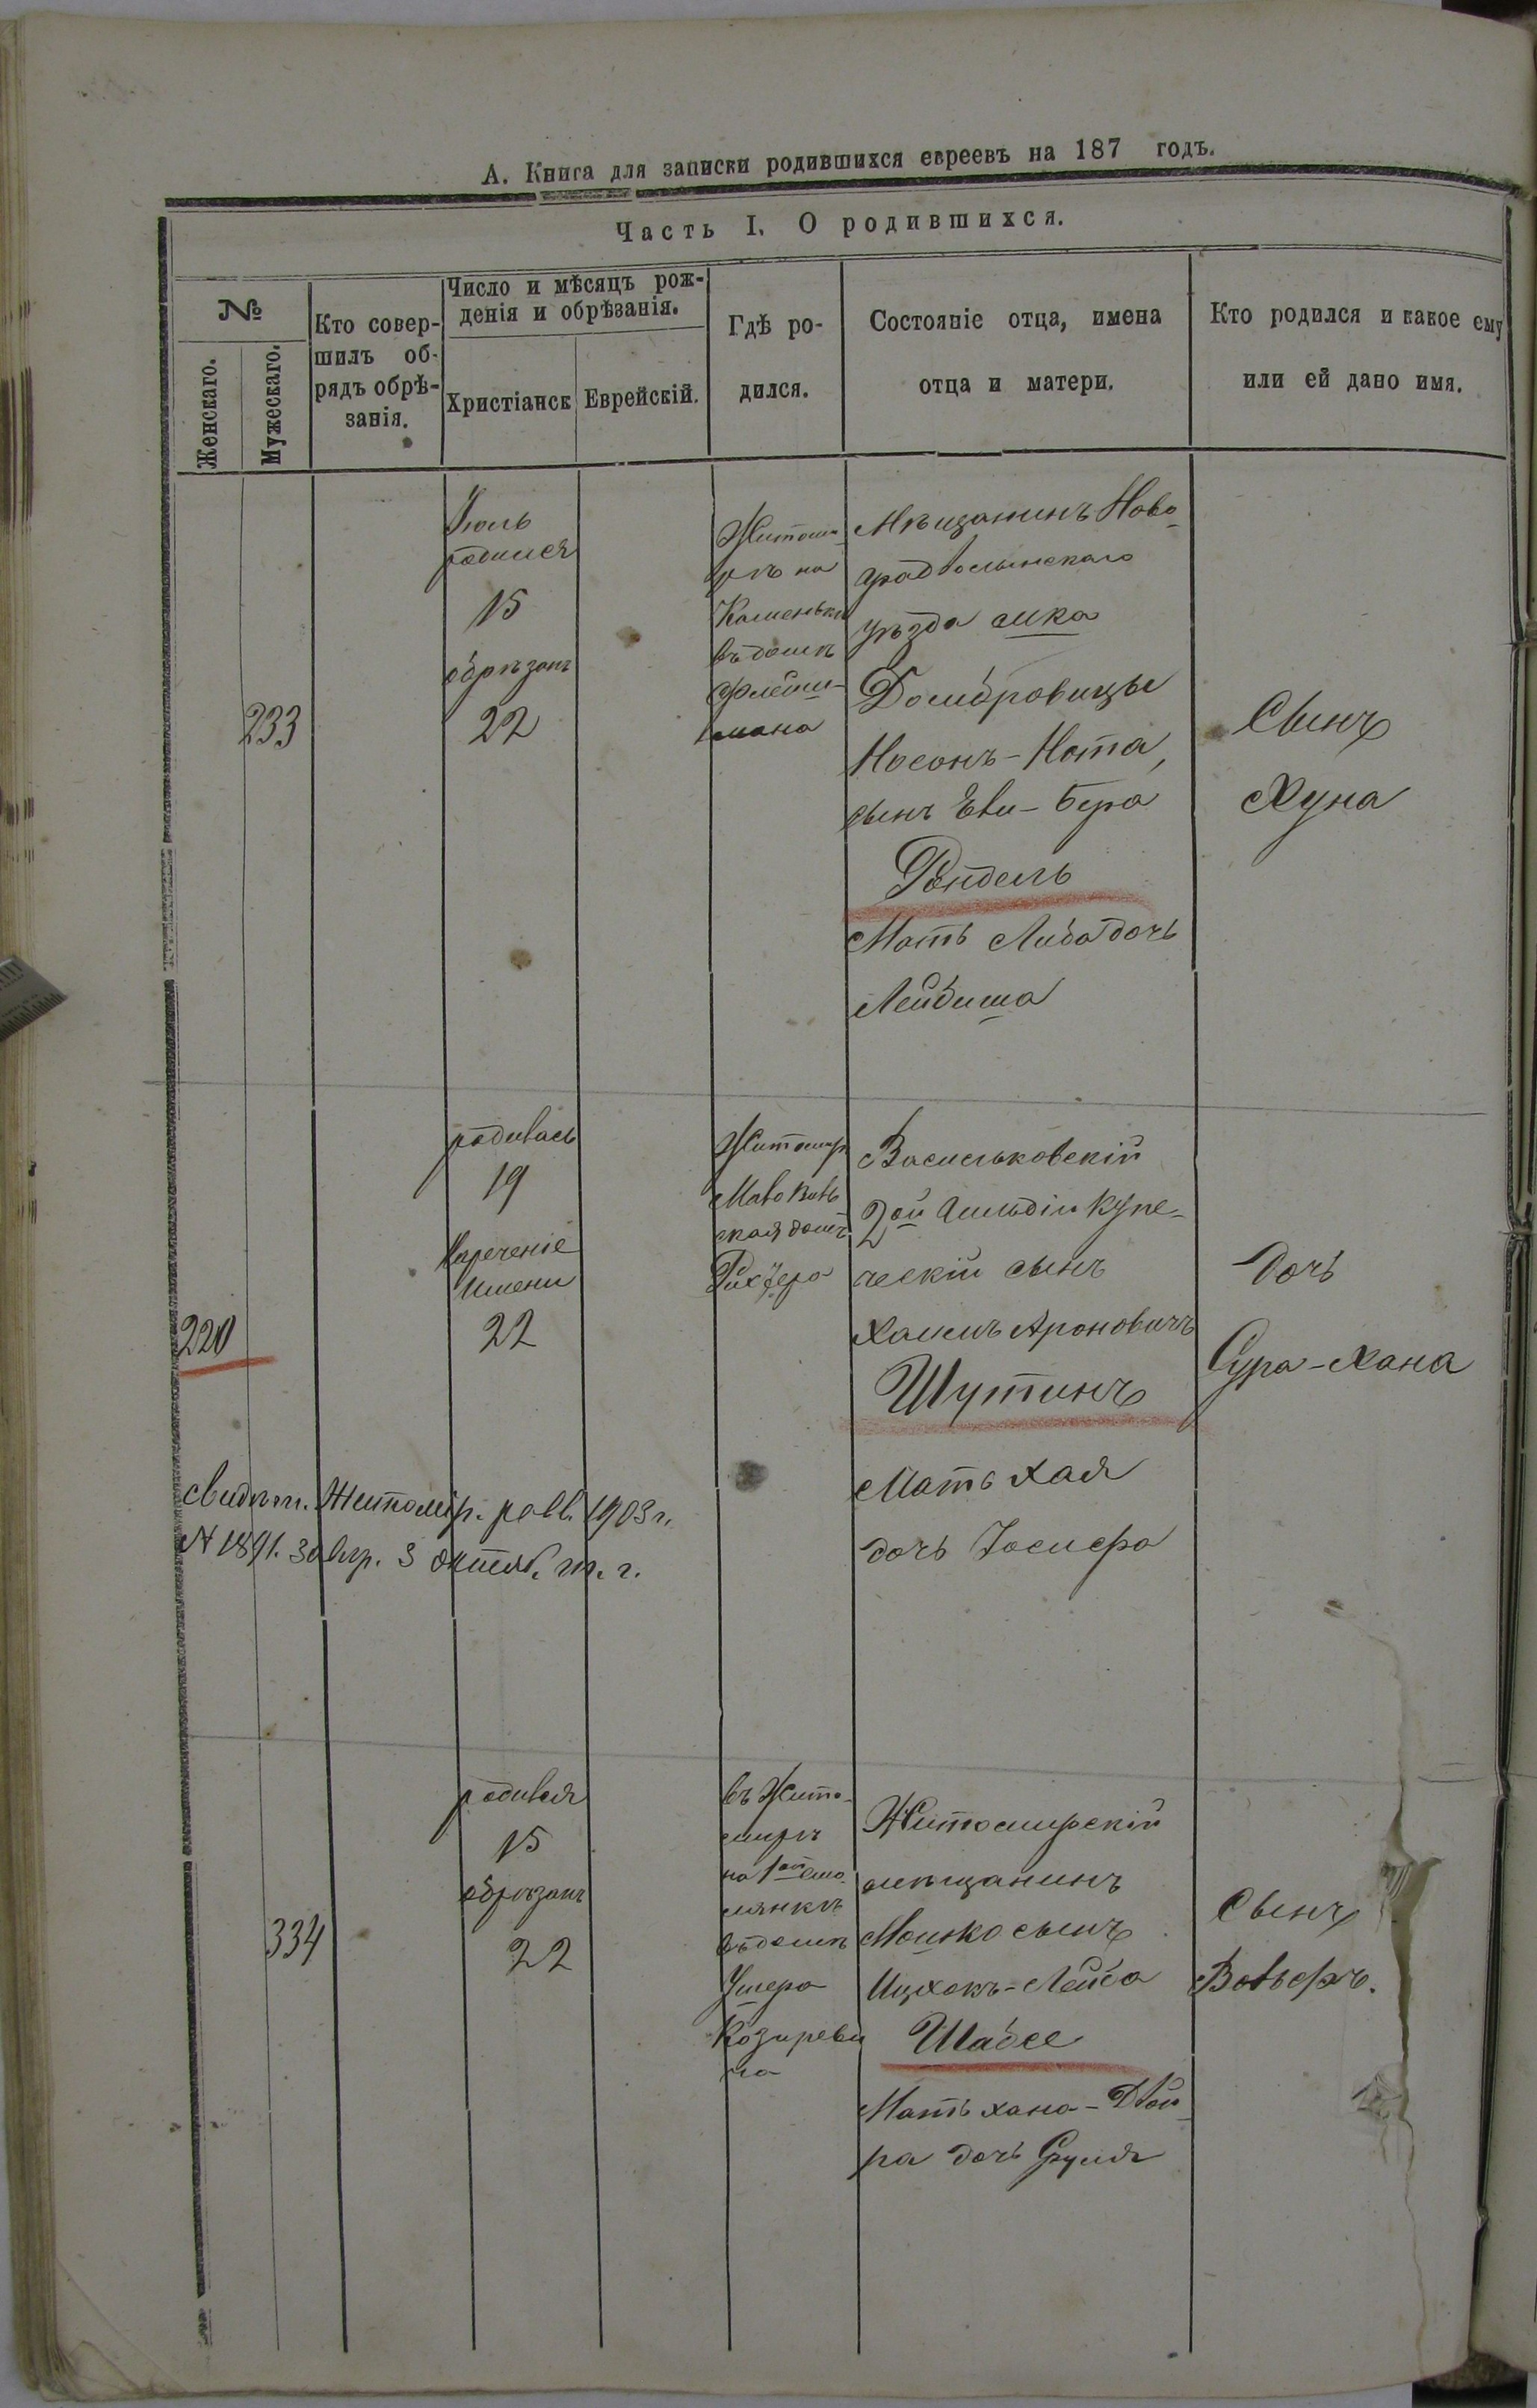 А. Книга для записки родившихся евреевъ на 187 годъ.
Часть I. О родившихся.
№
Женскаго.
Мужескаго.
Кто совер-
шилъ об-
рядъ обрѣ-
занія.
Число и мѣсяцъ рож-
денія и обрѣзанія.
Христіанск
Еврейскій.
Гдѣ ро-
дился.
Состояніе отца, имена
отца и матери.
Кто родился и какое ему
или ей дано имя.
233
Іюль
родился
15
обрѣзанъ
22
Житоми
рѣ на
Каменькѣ
въ домѣ
Флейш-
мана
Мѣщанинъ Ново-
градволынскаго
уѣзда мка
Домбровицы
Носонъ-Нота,
сынъ Еви-Бера
Рендель
Мать Либа дочь
Лейбиша
Сынъ
Хуна
220
родилась
19
Нареченіе
имени
22
Житомир
домъ
Рихтера
Васильковскій
2ой Гильдіи Купе-
ческій сынъ
Хаимъ Ароновичъ
Шутинъ
Мать Хая
дочь Іосифа
Дочь
Сура-Хана
Свидѣт. Житомір. равв. 1903 г.
№ 1891. завѣр. 3 октяб. т. г.
334
родился
15
обрѣзанъ
22
въ Жито-
мирѣ
на 1ой
въ домѣ
Ушера
Житомирскій
мѣщанинъ
Мошко сынъ
Ицхокъ-Лейба
Шабсе
Мать Хана-Двой-
ра дочь Сруля
Сынъ
Вольфъ.